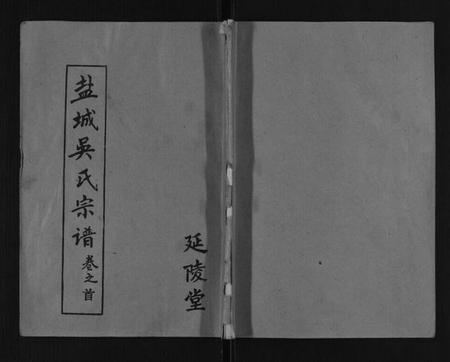 盐城吴氏宗谱 卷之首
延陵堂